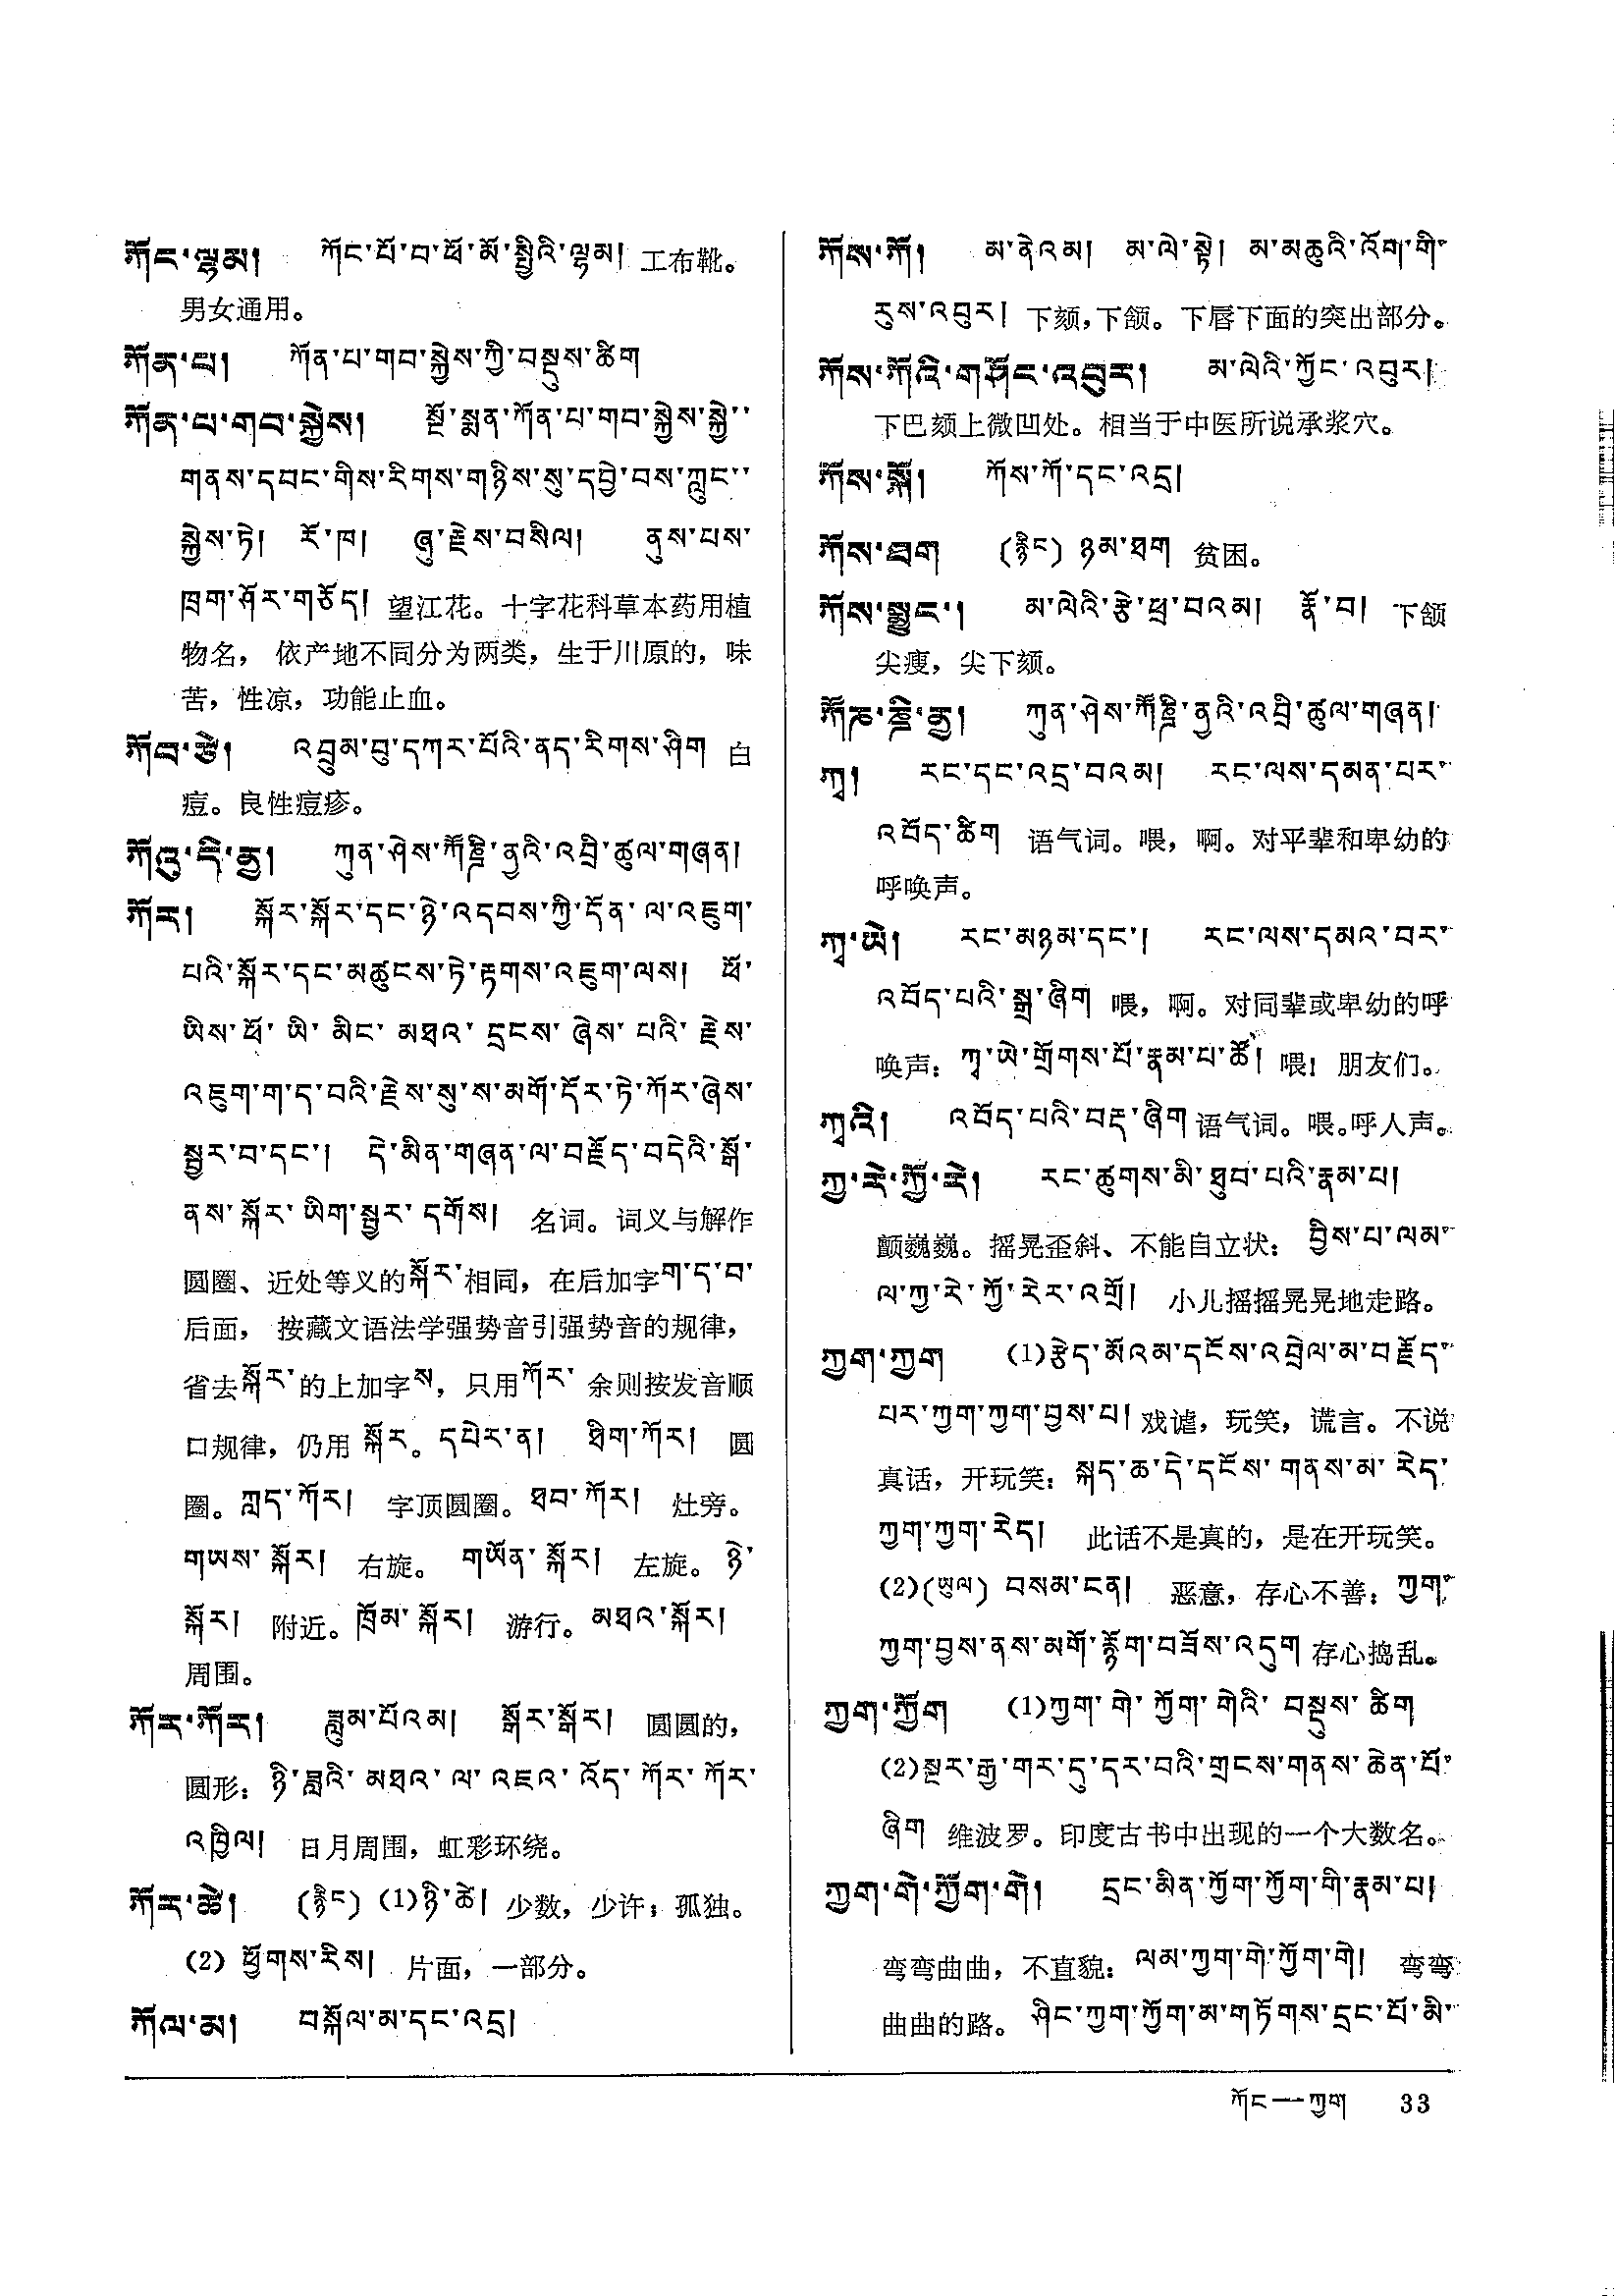 ཀོང་ལྷམ། ཀོང་པོ་བ་ཕོ་མོ་སྤྱིའི་ལྷམ། 工布靴。
男女通用。
ཀོན་པ། ཀོན་པ་གབ་སྐྱེས་ཀྱི་བསྡུས་ཚིག
ཀོན་པ་གབ་སྐྱེས། སྔོ་སྨན་ཀོན་པ་གབ་སྐྱེས་སྐྱེ་
གནས་དབང་གིས་རིགས་གཉིས་སུ་དབྱེ་བས་ཀླུང་
སྐྱེས་ཏེ། རོ་ཁ། ཞུ་རྗེས་བསིལ། ནུས་པས་
ཁྲག་ཤོར་གཅོད། 望江花。十字花科草本药用植
物名，依产地不同分为两类，生于川原的，味
苦，性凉，功能止血。
ཀོབ་ཙེ། འབྲུམ་བུ་དཀར་པོའི་ནད་རིགས་ཤིག 白
痘。良性痘疹。
ཀོའུ་དི་ནྱ། ཀུན་ཤེས་ཀཽཎྜི་ནྱའི་འབྲི་ཚུལ་གཞན།
ཀོར། སྐོར་སྐོར་དང་ཉེ་འདབས་ཀྱི་དོན་ལ་འཇུག་
པའི་སྐོར་དང་མཚུངས་ཏེ་རྟགས་འཇུག་ལས། ཕོ་
ཡིས་ཕོ་ཡི་མིང་མཐའ་དྲངས་ཞེས་པའི་རྗེས་
འཇུག་ག་ད་བའི་རྗེས་སུ་ས་མགོ་དོར་ཏེ་ཀོར་ཞེས་
སྦྱར་བ་དང་། དེ་མིན་གཞན་ལ་བརྗོད་བདེའི་སྒོ་
ནས་སྐོར་ཡིག་སྦྱར་དགོས། 名词。词义与解作
圆圈、近处等义的སྐོར་相同，在后加字ག་ད་བ་
后面，按藏文语法学强势音引强势音的规律，
省去སྐོར་的上加字ས，只用ཀོར་余则按发音顺
口规律，仍用སྐོར。དཔེར་ན། ཐིག་ཀོར། 圆
圈。ཀླད་ཀོར། 字顶圆圈。ཐབ་ཀོར། 灶旁。
གཡས་སྐོར། 右旋。གཡོན་སྐོར། 左旋。ཉེ་
སྐོར། 附近。ཁྲོམ་སྐོར། 游行。མཐའ་སྐོར།
周围。
ཀོར་ཀོར། ཟླུམ་པོའམ། སྒོར་སྒོར། 圆圆的，
圆形：ཉི་ཟླའི་མཐའ་ལ་འཇའ་འོད་ཀོར་ཀོར་
འཁྱིལ། 日月周围，虹彩环绕。
ཀོར་ཚེ། (རྙིང) (1)ཉི་ཚེ། 少数，少许；孤独。
(2) ཕྱོགས་རིས། 片面，一部分。
ཀོལ་མ། བསྐོལ་མ་དང་འདྲ།
ཀོས་ཀོ། མ་ནེའམ། མ་ལེ་སྟེ། མ་མཆུའི་འོག་གི་
རུས་འབུར། 下颏，下颌。下唇下面的突出部分。
ཀོས་ཀོའི་གཤོང་འབུར། མ་ལེའི་ཀྱོང་འབུར།
下巴颏上微凹处。相当于中医所说承浆穴。
ཀོས་སྐོ། ཀོས་ཀོ་དང་འདྲ།
ཀོས་ཐག (རྙིང) ཉམ་ཐག 贫困。
ཀོས་སྨྱུང་། མ་ལེའི་རྩེ་ཕྲ་བའམ། རྣོ་བ། 下颌
尖瘦，尖下颏。
ཀཽཎྜི་ནྱ། ཀུན་ཤེས་ཀཽཎྜི་ནྱའི་འབྲི་ཚུལ་གཞན།
ཀྭ། རང་དང་འདྲ་བའམ། རང་ལས་དམན་པར་
འབོད་ཚིག 语气词。喂，啊。对平辈和卑幼的
呼唤声。
ཀྭ་ཡེ། རང་མཉམ་དང་། རང་ལས་དམའ་བར་
འབོད་པའི་སྒྲ་ཞིག 喂，啊。对同辈或卑幼的呼
唤声：ཀྭ་ཡེ་གྲོགས་པོ་རྣམ་པ་ཚོ། 喂！朋友们。
ཀྭའི། འབོད་པའི་བརྡ་ཞིག 语气词。喂。呼人声。
ཀྱ་རེ་ཀྱོ་རེ། རང་ཚུགས་མི་ཐུབ་པའི་རྣམ་པ།
颤巍巍。摇晃歪斜、不能自立状：བྱིས་པ་ལམ་
ལ་ཀྱ་རེ་ཀྱོ་རེར་འགྲོ། 小儿摇摇晃晃地走路。
ཀྱག་ཀྱག (1)རྩེད་མོའམ་དངོས་འབྲེལ་མ་བརྗོད་
པར་ཀྱག་ཀྱག་བྱས་པ། 戏谑，玩笑，谎言。不说
真话，开玩笑：སྐད་ཆ་དེ་དངོས་གནས་མ་རེད་
ཀྱག་ཀྱག་རེད། 此话不是真的，是在开玩笑。
(2)(ཡུལ) བསམ་ངན། 恶意，存心不善：ཀྱག་
ཀྱག་བྱས་ནས་མགོ་རྙོག་བཟོས་འདུག 存心捣乱。
ཀྱག་ཀྱོག (1)ཀྱག་གེ་ཀྱོག་གེའི་བསྡུས་ཚིག
(2)སྔར་རྒྱ་གར་དུ་དར་བའི་གྲངས་གནས་ཆེན་པོ་
ཞིག 维波罗。印度古书中出现的一个大数名。
ཀྱག་གེ་ཀྱོག་གེ། དྲང་མིན་ཀྱོག་ཀྱོག་གི་རྣམ་པ།
弯弯曲曲，不直貌：ལམ་ཀྱག་གེ་ཀྱོག་གེ། 弯弯
曲曲的路。ཤིང་ཀྱག་ཀྱོག་མ་གཏོགས་དྲང་པོ་མི་
ཀོང—ཀྱག 33